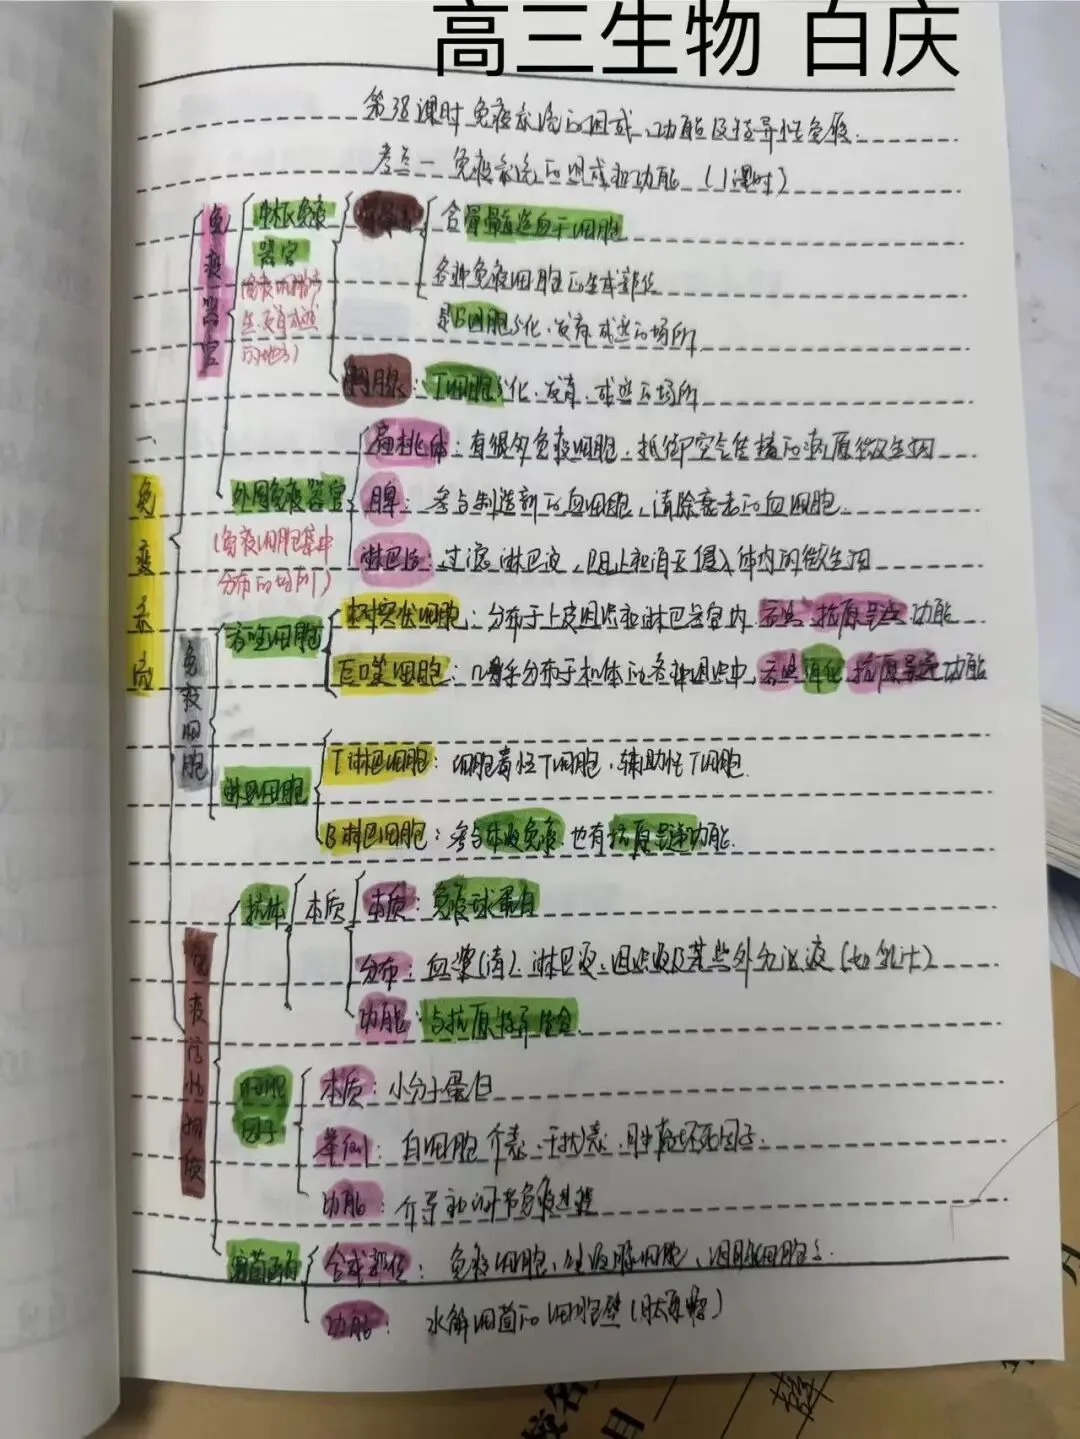 高三生物 白庆
第38课时 免疫系统的组成、功能及特异性免疫
考点一 免疫系统的组成和功能 (1课时)
一、免疫系统
免疫器官
中枢免疫器官
(免疫细胞产生、发育成熟的地方)
骨髓
含骨髓造血干细胞
各种免疫细胞的生成部位
是B细胞分化、发育、成熟的场所
胸腺:T细胞分化、发育、成熟的场所
外周免疫器官
(免疫细胞集中分布的场所)
扁桃体:有很多免疫细胞,抵御空气传播的病原微生物
脾:参与制造新的血细胞,清除衰老的血细胞
淋巴结:过滤淋巴液,阻止和消灭侵入体内的微生物
免疫细胞
吞噬细胞
树突状细胞:分布于上皮组织和淋巴器官内,吞噬、抗原呈递功能
巨噬细胞:几乎分布于机体的各种组织中,吞噬消化、抗原呈递功能
淋巴细胞
T淋巴细胞:细胞毒性T细胞,辅助性T细胞
B淋巴细胞:参与体液免疫,也有抗原呈递功能
免疫活性物质
抗体
本质
本质:免疫球蛋白
分布:血浆(清)、淋巴液、组织液及某些外分泌液(如乳汁)
功能:与抗原特异性结合
细胞因子
本质:小分子蛋白
举例:白细胞介素、干扰素、肿瘤坏死因子
功能:介导和调节免疫过程
溶菌酶
合成部位:免疫细胞、唾液腺细胞、泪腺细胞等
功能:水解细菌的细胞壁(肽聚糖)